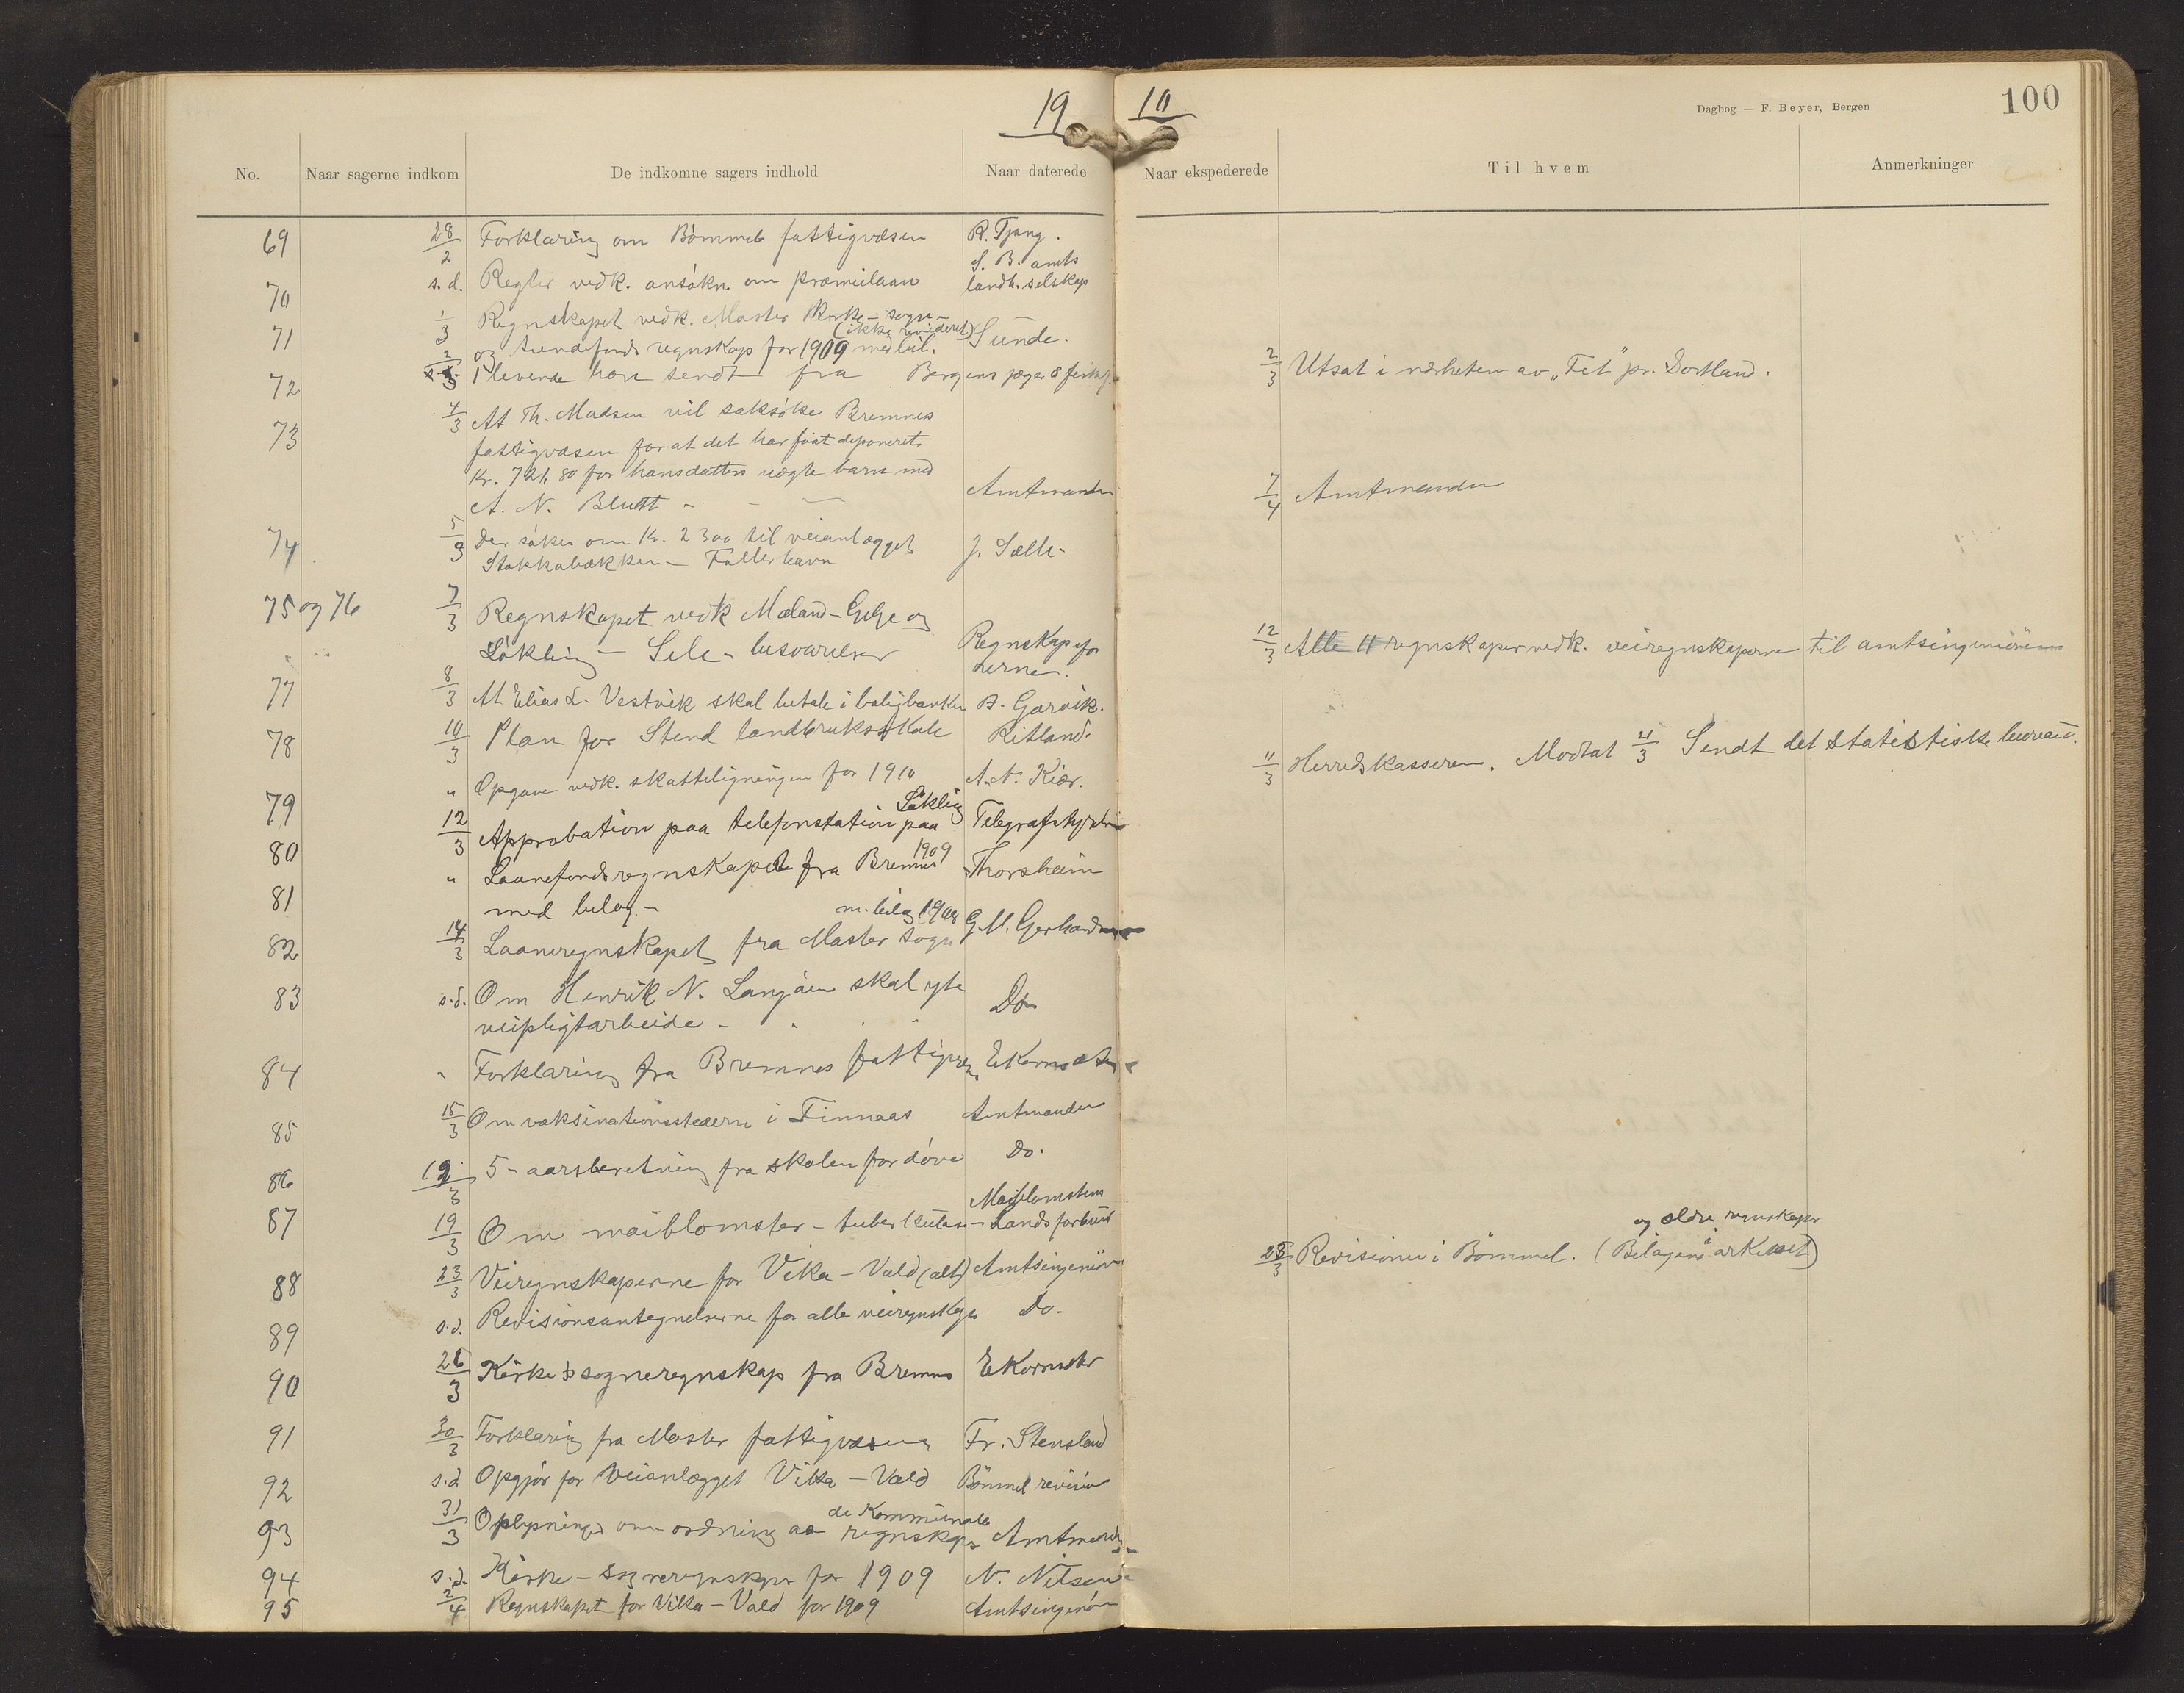 19 10
Dagbog — F. Beyer, Bergen
100
No. Naar sagerne indkom De indkomne sagers indhold Naar daterede Naar ekspederede Til hvem Anmerkninger
69 28/2 Forklaring om Bømmel fattigvæsen R. Tjong.
70 s.d. Regler vedk. ansøkn. om præmielaan S. B. amts landh. selskap
71 1/3 Regnskapet vedk. Moster Kirke - sogn -
(ikke revideret)
og tiendefonds regnskap for 1909 med bil. Sunde.
72 2/3 1 levende hare sendt fra Bergens jæger & 2/3 Utsat i nærheten av "Fet" pr. Dortland.
73 4/3 At Th. Madsen vil saksøke Bremnes
fattigvæsen for at det har faat deponeret
Kr. 721,80 for hans datters uægte barn med
A. N. Blutt - Amtmanden 7/4 Amtmanden
74 5/3 Der søkes om Kr. 2300 til veianlægget
Stokkabækken - Fallerhavn J. Sælle -
75 og 76 7/3 Regnskapet vedk Mæland - og
Løkling - Sele - besvarelser Regnskapsførerne. 12/3 Alle 4 regnskaper vedk. veiregnskaperne til amtsingeniøren
77 8/3 At Elias L. Vestvik skal betale i boligbanken B. Garvik.
78 10/3 Plan for Stend landbruksskole Ritland.
79 " Opgave vedk. skatteligningen for 1910 A. N. Kiær. 11/3 Herredskasseren. Modtat 21/3 Sendt det statistiske bureau.
Løkling
80 12/3 Approbation paa telefonstation paa Telegrafstyrelsen
1909
81 " Laanefondsregnskapet fra Bremnes Thorsheim
med bilag -
m. bilag 1908
82 14/3 Laaneregnskapet fra Moster sogn G. M. Gerhardsen
83 s.d. Om Henrik N. Langåen skal yte
veipligtarbeide - Do
84 " Forklaring fra Bremnes fattigv. E Kornsæter
85 15/3 Om vaksinationsstederne i Finnaas Amtmanden
86 19/3 5-aarsberetning fra skolen for døve Do.
87 19/3 Om maiblomster - tuberkulose - Maiblomstens Landsforbund
og ældre regnskaper
88 23/3 Veiregnskaperne for Vika - Vald (alt) Amtsingeniøren 23/3 Revisionen i Bømmel. (Bilagene i arkivet)
89 s.d. Revisionsantegnelserne for alle veiregnskaper Do.
90 26/3 Kirke & sogneregnskap fra Bremnes E Kornsæter
91 30/3 Forklaring fra Moster fattigvæsen Fr. Stensland
92 s.d Opgjør for veianlægget Vika - Vald Bømmel revision
93 31/3 Oplysninger om ordning av de kommunale regnskaper Amtmanden
94 s.d. Kirke - sogneregnskaper for 1909 N. Nilsen
95 2/4 Regnskapet for Vika - Vald for 1909 Amtsingeniøren